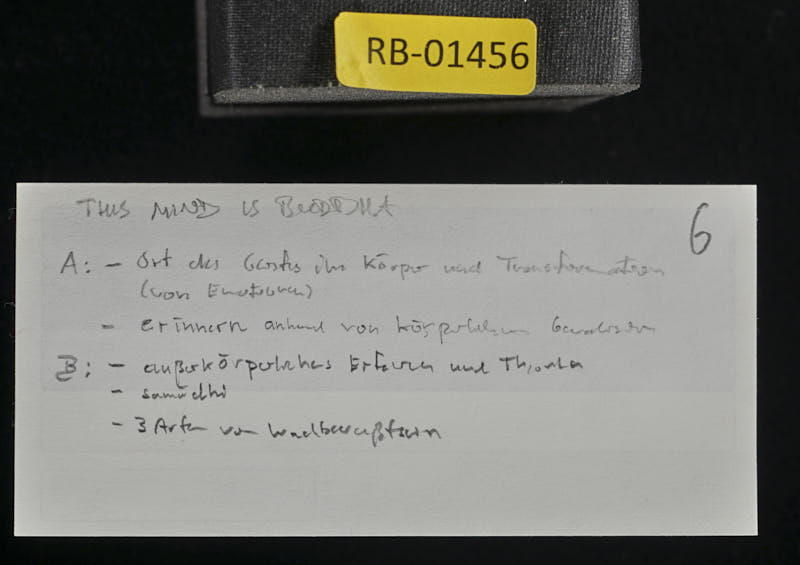 RB-01456
THIS MIND IS BUDDHA
6
A: - Ort des Geistes im Körper und Transformation
(von Emotionen)
- erinnern anhand von körperlichem
B: - außerkörperliches Erfahren und
- samādhi
- 3 Arten von Wachbewußtsein